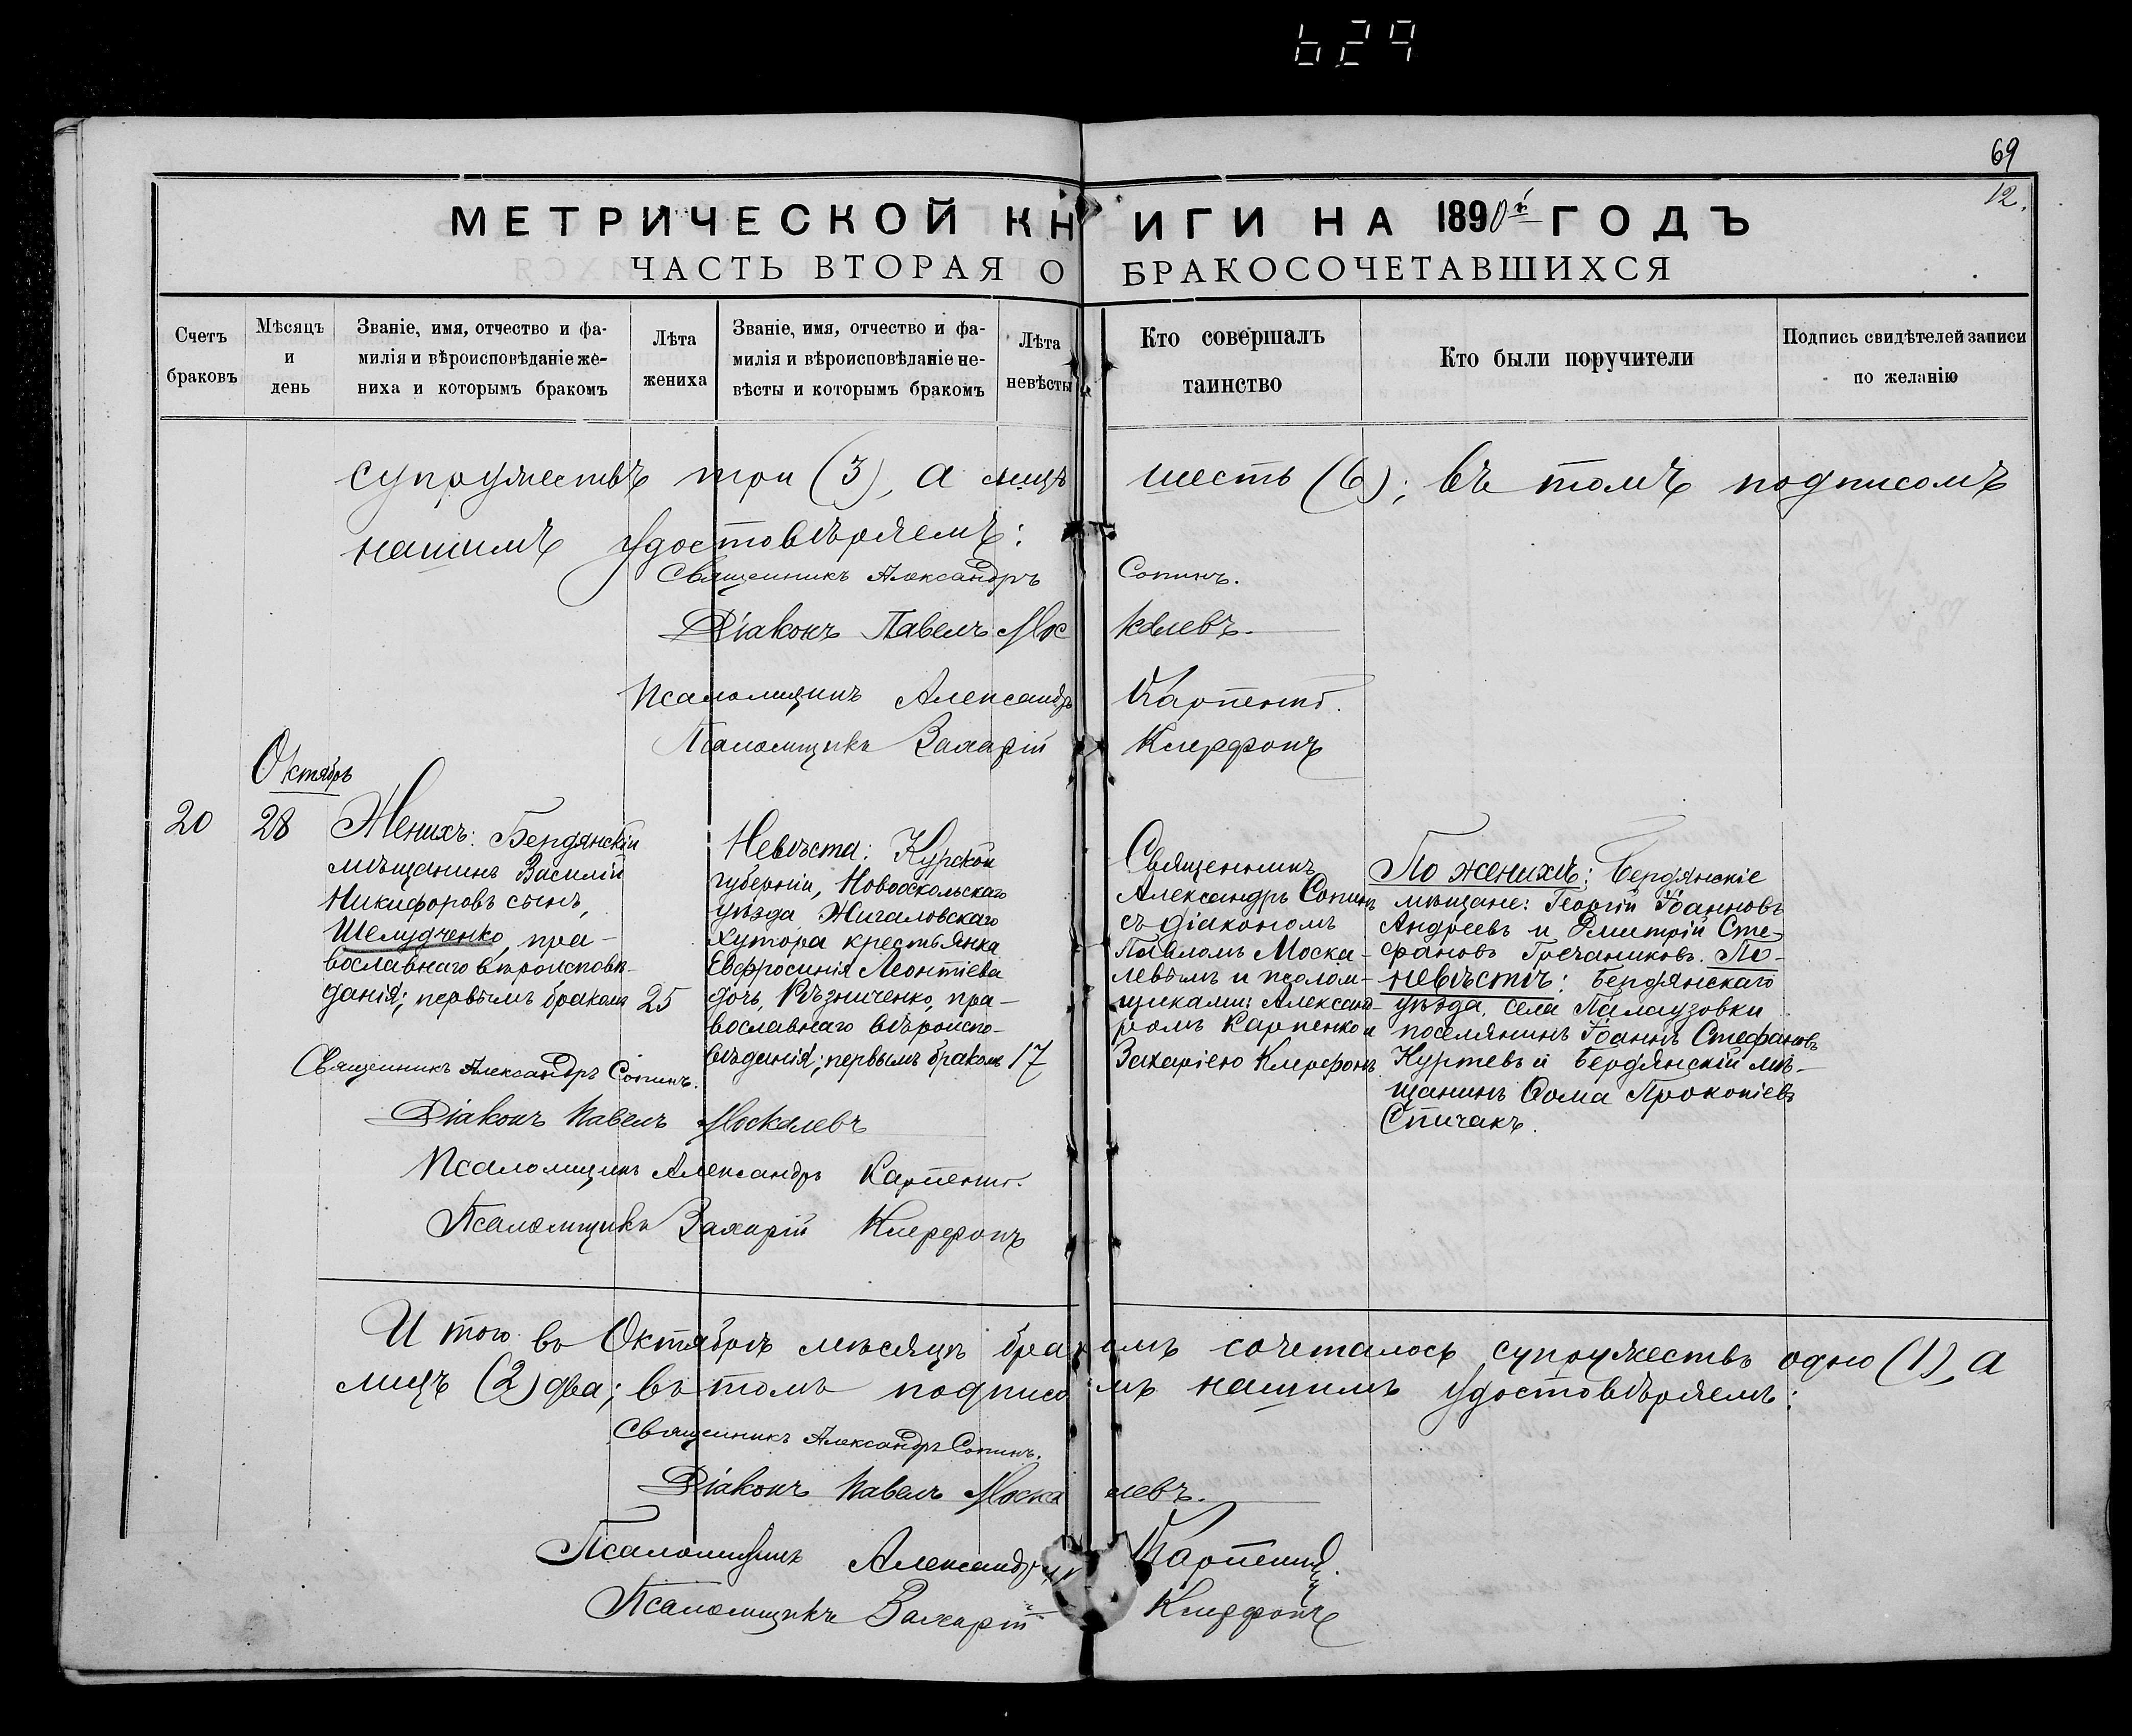 629
69
12.
МЕТРИЧЕСКОЙ КНИГИ НА 1890й ГОДЪ
ЧАСТЬ ВТОРАЯ О БРАКОСОЧЕТАВШИХСЯ
Счетъ
браковъ
Мѣсяцъ
и
день
Званіе, имя, отчество и фа-
милія и вѣроисповѣданіе же-
ниха и которымъ бракомъ
Лѣта
жениха
Званіе, имя, отчество и фа-
милія и вѣроисповѣданіе не-
вѣсты и которымъ бракомъ
Лѣта
невѣсты
Кто совершалъ
таинство
Кто были поручители
Подпись свидѣтелей записи
по желанію
супружествъ три (3), а лицъ шесть (6); въ томъ подписомъ
нашимъ удостовѣряемъ:
Священникъ Александръ Сопинъ.
Діаконъ Павелъ Москалевъ.
Псаломщикъ Александръ Карпенко.
Псаломщикъ Захарій
Октябрь
20
28
Женихъ: Бердянскій
мѣщанинъ Василій
Никифоровъ сынъ,
Шелудченко, пра-
вославнаго вѣроисповѣ-
данія; первымъ бракомъ
25
Невѣста: Курской
губерніи, Новооскольскаго
уѣзда Жигаловскаго
хутора крестьянка
Евфросинія Леонтіева
дочь, Рѣзниченко, пра-
вославнаго вѣроиспо-
вѣданія; первымъ бракомъ
17
Священникъ
Александръ Сопинъ
съ діакономъ
Павломъ Моска-
левымъ и псалом-
щиками: Александ-
ромъ Карпенко и
Захаріею
По женихѣ: Бердянскіе
мѣщане: Георгій Іоанновъ
Андреевъ и Дмитрій Сте-
фановъ Гречаниковъ. По-
невѣстѣ: Бердянскаго
уѣзда, села Палаузовки
поселянинъ Іоаннъ Стефановъ
Куртевъ и Бердянскій мѣ-
щанинъ Ѳома Прокопіевъ
Спичакъ.
Священникъ Александръ Сопинъ.
Діаконъ Павелъ Москалевъ
Псаломщикъ Александръ Карпенко.
Псаломщикъ Захарій
Итого въ Октябрѣ мѣсяцѣ бракомъ сочеталось супружествъ одно (1), а
лицъ (2) два; въ томъ подписомъ нашимъ удостовѣряемъ:
Священникъ Александръ Сопинъ.
Діаконъ Павелъ Москалевъ.
Псаломщикъ Александръ Карпенко.
Псаломщикъ Захарій